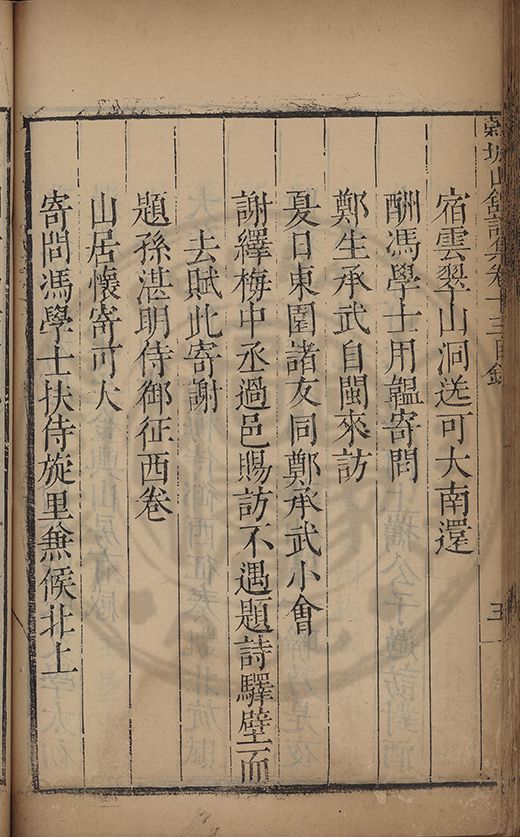 穀城山館詩集卷十三目錄
五
宿雲翠山洞送可大南還
酬馮學士用韞寄問
鄭生承武自閩來訪
夏日東園諸友同鄭承武小會
謝繹梅中丞過邑賜訪不遇題詩驛壁而
去賦此寄謝
題孫湛明侍御征西卷
山居懷寄可大
寄問馮學士扶侍旋里兼候北上